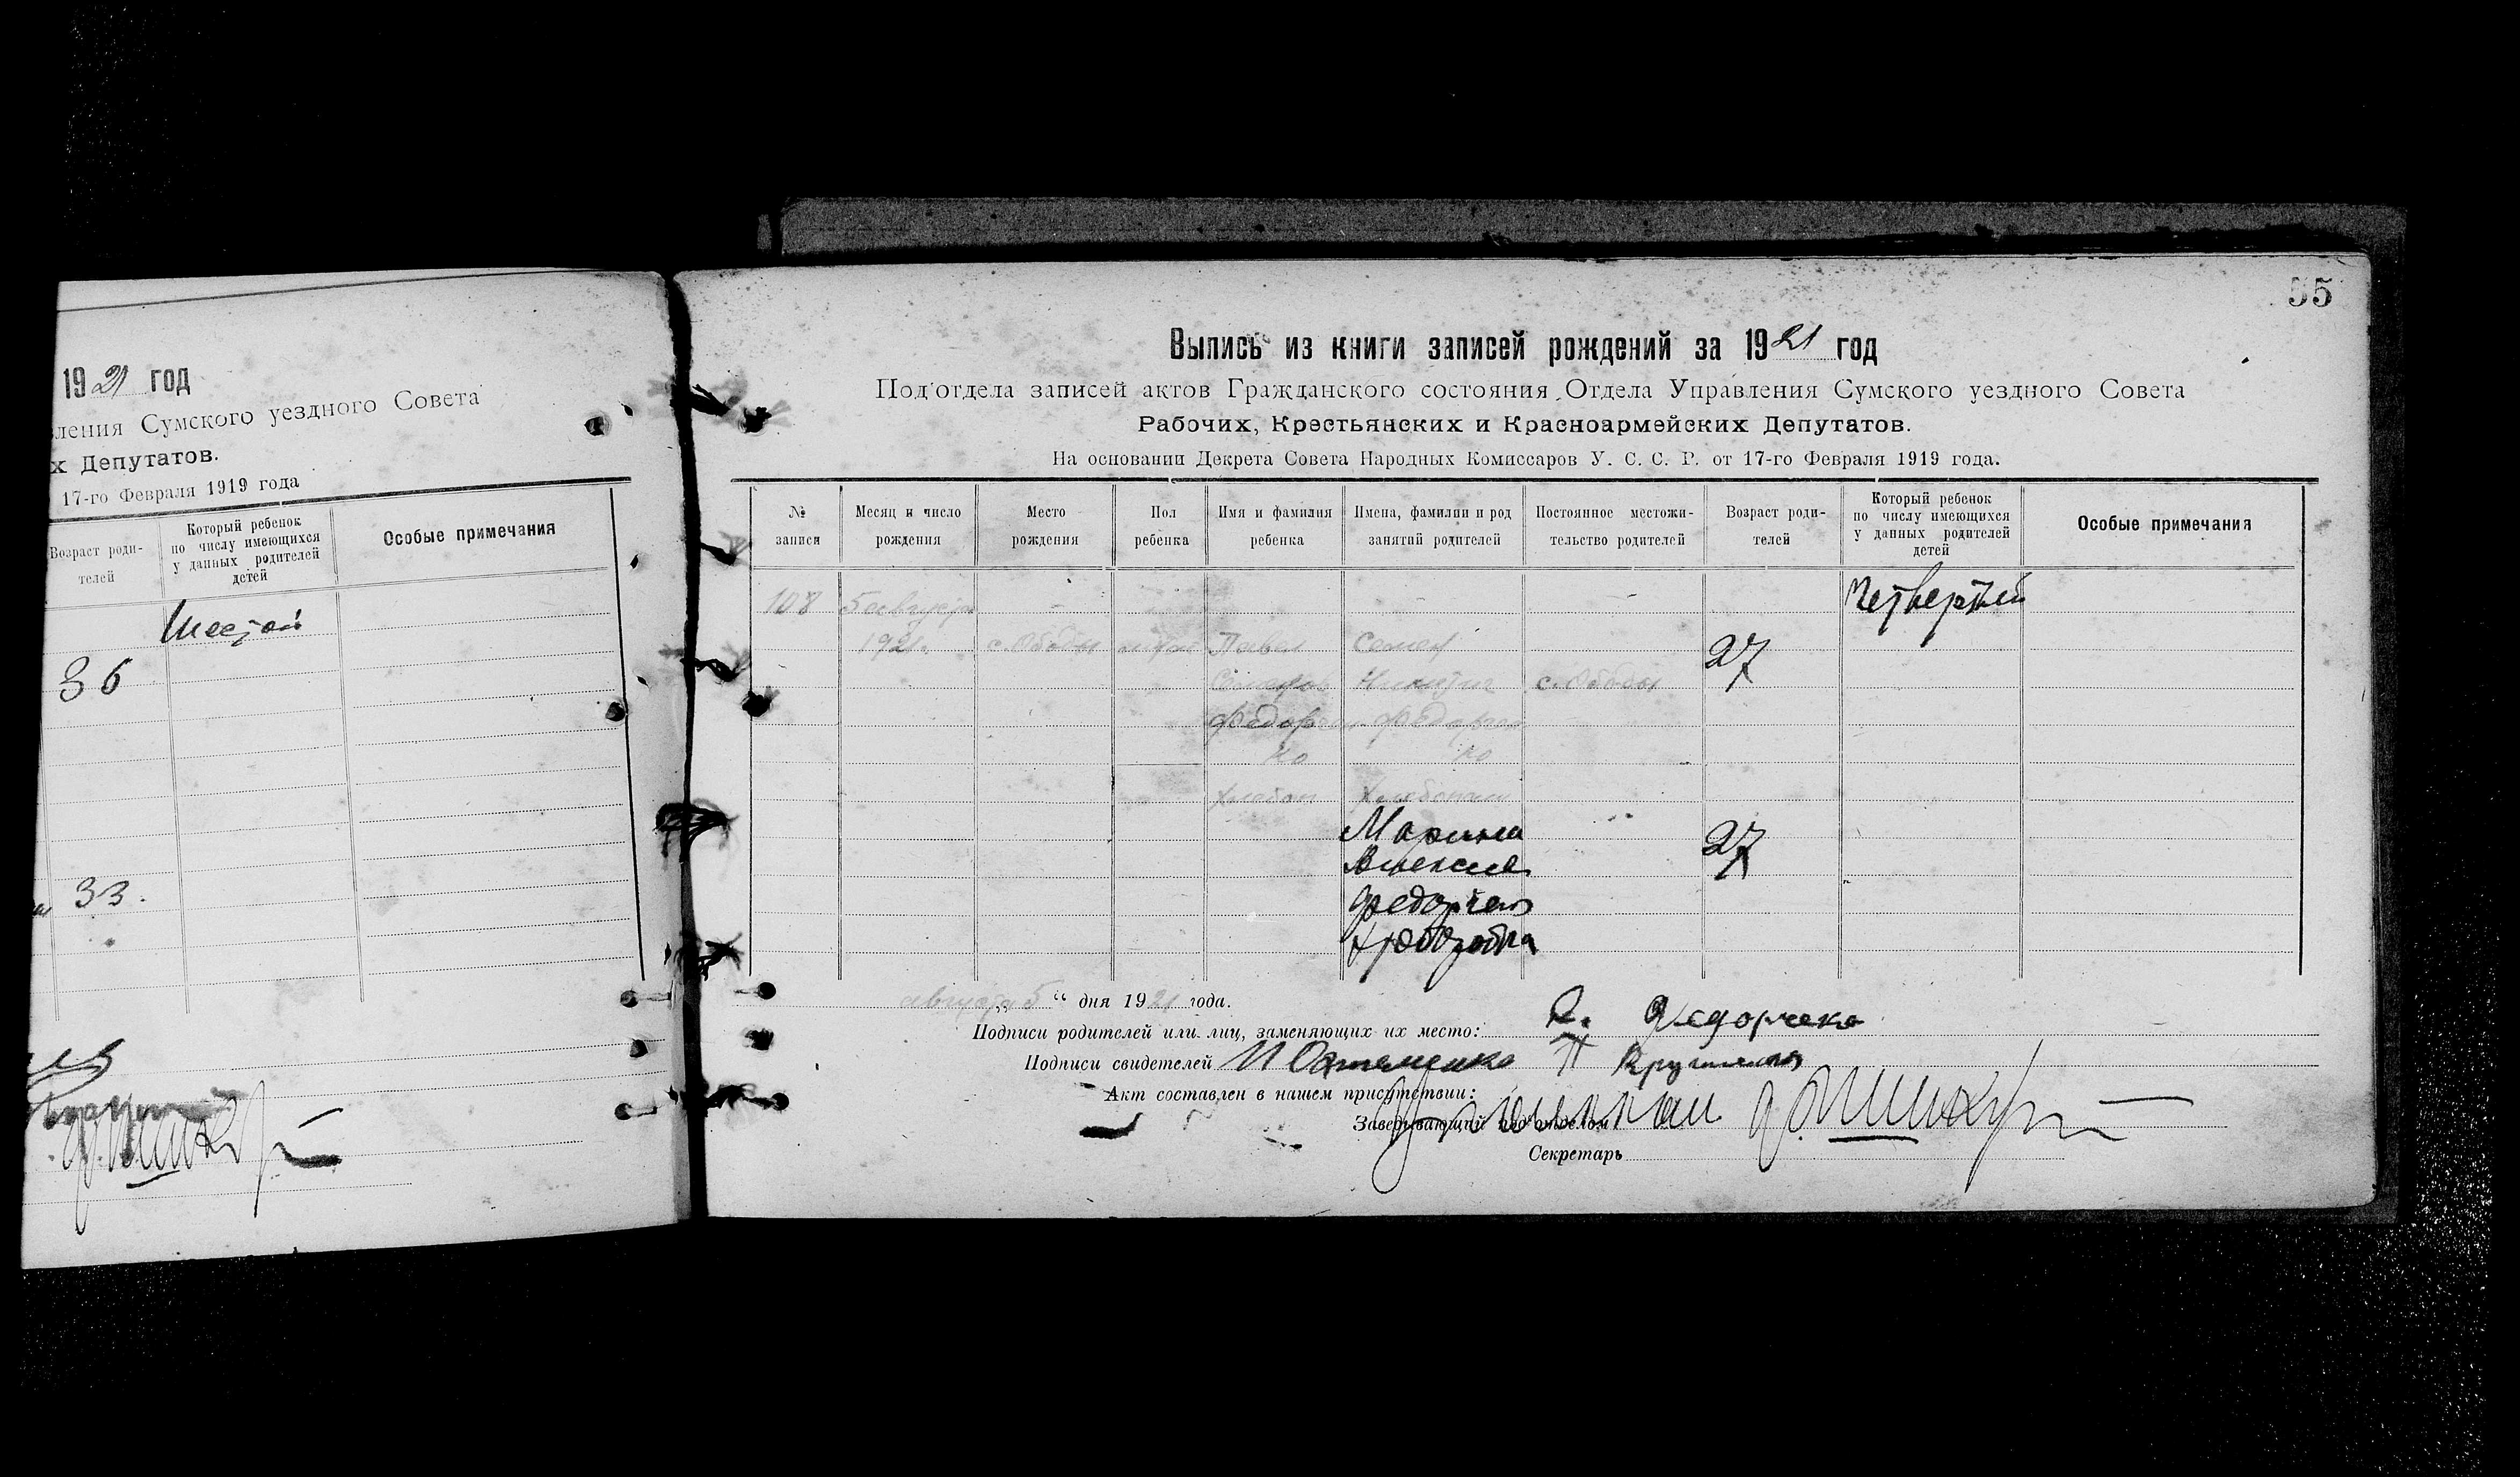 1921 год
ления Сумского уездного Совета
х Депутатов.
17-го Февраля 1919 года
Возраст роди-
телей
Который ребенок
по числу имеющихся
у данных родителей
детей
Особые примечания
Шестой
36
33.
55
Выпись из книги записей рождений за 1921 год
Под'отдела записей актов Гражданского состояния Отдела Управления Сумского уездного Совета
Рабочих, Крестьянских и Красноармейских Депутатов.
На основании Декрета Совета Народных Комиссаров У. С. С. Р. от 17-го Февраля 1919 года.
№
записи
Месяц и число
рождения
Место
рождения
Пол
ребенка
Имя и фамилия
ребенка
Имена, фамилии и род
занятий родителей
Постоянное местожи-
тельство родителей
Возраст роди-
телей
Который ребенок
по числу имеющихся
у данных родителей
детей
Особые примечания
108 5 августа Четвертый
1921. с. Ободы Павел Семен 27
Никитич с. Ободы
Федорчен Федорчен
ко ко
Хлебоп Хлебопаш
Марина 27
Алексеев
Федорчен
Хлебороб
августа „5“ дня 1921 года.
Подписи родителей или лиц, заменяющих их место: Федорченко
Подписи свидетелей И
Акт составлен в нашем присутствии:
Заведывающий под'отделом
Секретарь